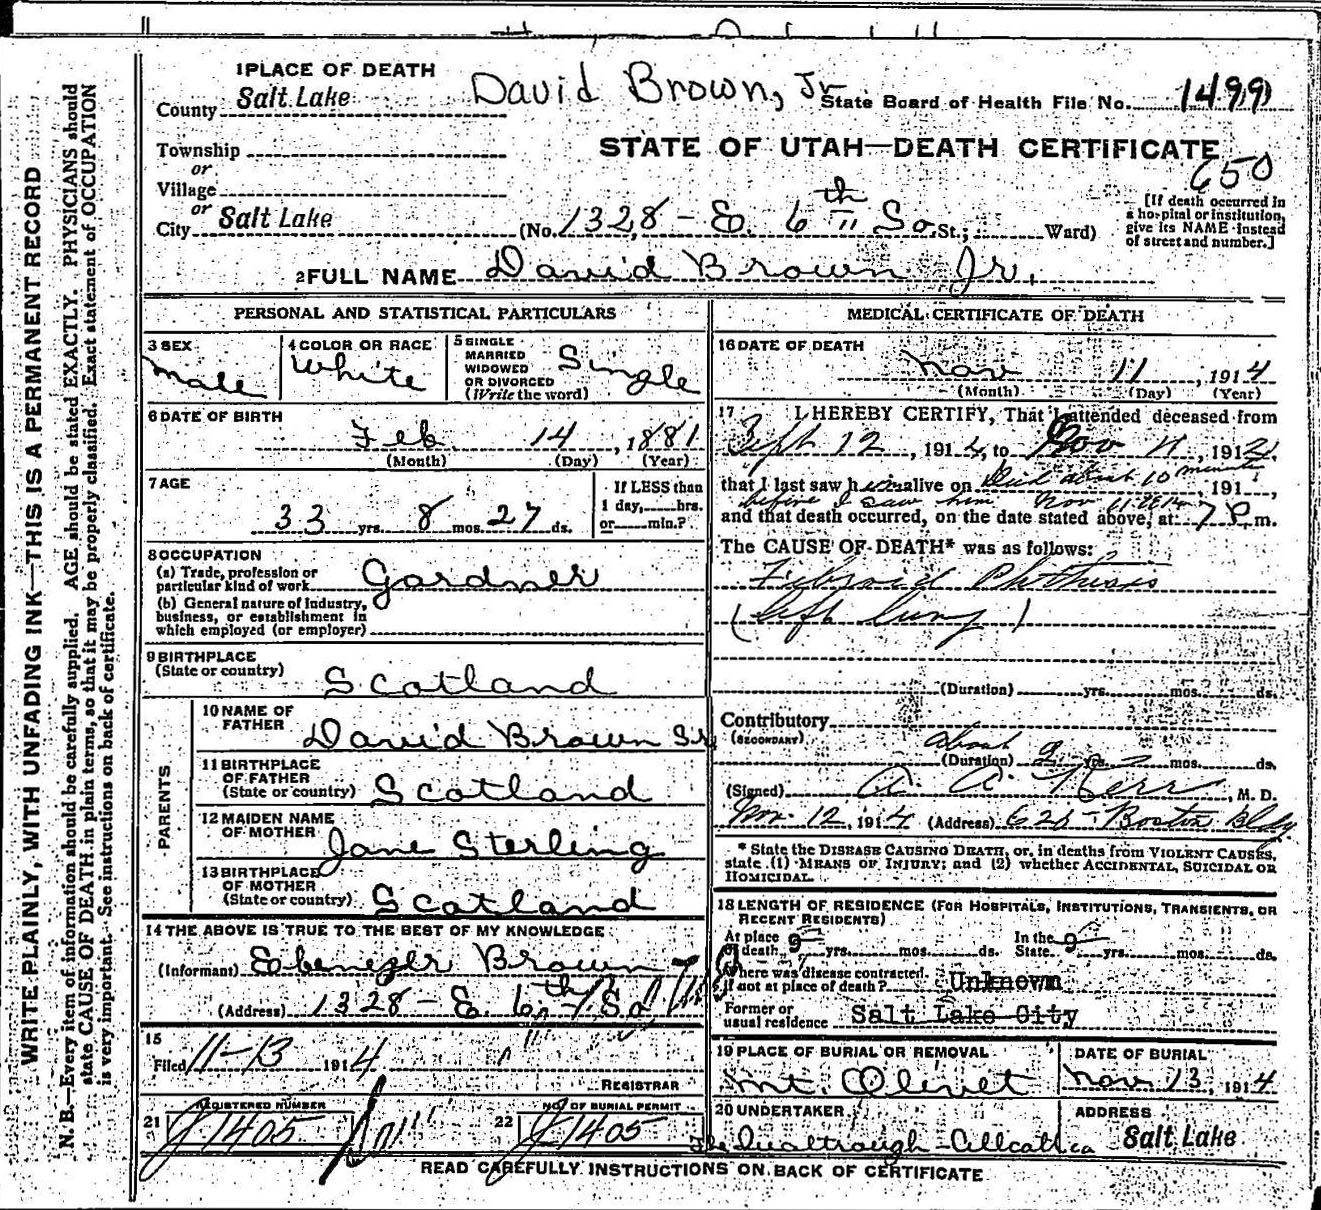 WRITE PLAINLY, WITH UNFADING INK—THIS IS A PERMANENT RECORD
N. B.—Every item of information should be carefully supplied. AGE should be stated EXACTLY. PHYSICIANS should
state CAUSE OF DEATH in plain terms, so that it may be properly classified. Exact statement of OCCUPATION
is very important. See instructions on back of certificate.
1 PLACE OF DEATH
David Brown, Jr
County Salt Lake
State Board of Health File No. 1499
STATE OF UTAH—DEATH CERTIFICATE
650
Township
or
Village
or
City Salt Lake (No. 1328 - E. 6th So. St.; Ward)
[If death occurred in
a hospital or institution,
give its NAME instead
of street and number.]
2 FULL NAME David Brown Jr.
PERSONAL AND STATISTICAL PARTICULARS
3 SEX
Male
4 COLOR OR RACE
White
5 SINGLE
MARRIED
WIDOWED
OR DIVORCED
(Write the word)
Single
6 DATE OF BIRTH
Feb. 14, 1881
(Month) (Day) (Year)
7 AGE
33 yrs. 8 mos. 27 ds.
If LESS than
1 day, hrs.
or min.?
8 OCCUPATION
(a) Trade, profession or
particular kind of work Gardner
(b) General nature of industry,
business, or establishment in
which employed (or employer)
9 BIRTHPLACE
(State or country)
Scotland
PARENTS
10 NAME OF
FATHER
David Brown Sr
11 BIRTHPLACE
OF FATHER
(State or country) Scotland
12 MAIDEN NAME
OF MOTHER
Jane Sterling
13 BIRTHPLACE
OF MOTHER
(State or country) Scotland
14 THE ABOVE IS TRUE TO THE BEST OF MY KNOWLEDGE
(Informant) Ebenezer Brown
(Address) 1328 - E. 6th So
15
Filed 11-13 1914
REGISTRAR
21 REGISTERED NUMBER
J1405
22 NO. OF BURIAL PERMIT
J1405
MEDICAL CERTIFICATE OF DEATH
16 DATE OF DEATH
Nov 11, 1914
(Month) (Day) (Year)
17 I HEREBY CERTIFY, That I attended deceased from
Sept 12, 1914, to Nov 11, 191
that I last saw him alive on Died about 10 minutes, 191 ,
before I saw him Nov 11
and that death occurred, on the date stated above, at 7 P. m.
The CAUSE OF DEATH* was as follows:
Fibroid Phthisis
(left lung)
(Duration) yrs. mos. ds.
Contributory
(SECONDARY)
about
(Duration) 2 yrs. mos. ds.
(Signed) A. A. Kerr, M. D.
Nov. 12, 1914 (Address) 628 - Boston Bldg
* State the DISEASE CAUSING DEATH, or, in deaths from VIOLENT CAUSES,
state (1) MEANS OF INJURY; and (2) whether ACCIDENTAL, SUICIDAL OR
HOMICIDAL.
18 LENGTH OF RESIDENCE (FOR HOSPITALS, INSTITUTIONS, TRANSIENTS, OR
RECENT RESIDENTS)
At place
of death 9 yrs. mos. ds. In the
State 9 yrs. mos. ds.
Where was disease contracted.
if not at place of death? Unknown
Former or
usual residence Salt Lake City
19 PLACE OF BURIAL OR REMOVAL
Mt. Olivet
DATE OF BURIAL
Nov. 13, 1914
20 UNDERTAKER
ADDRESS
Salt Lake
READ CAREFULLY INSTRUCTIONS ON BACK OF CERTIFICATE